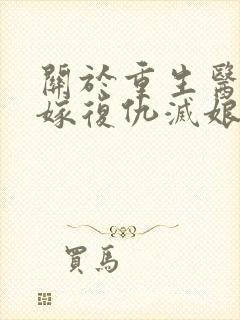 關於重生醫
嫁復仇滅娘
買馬